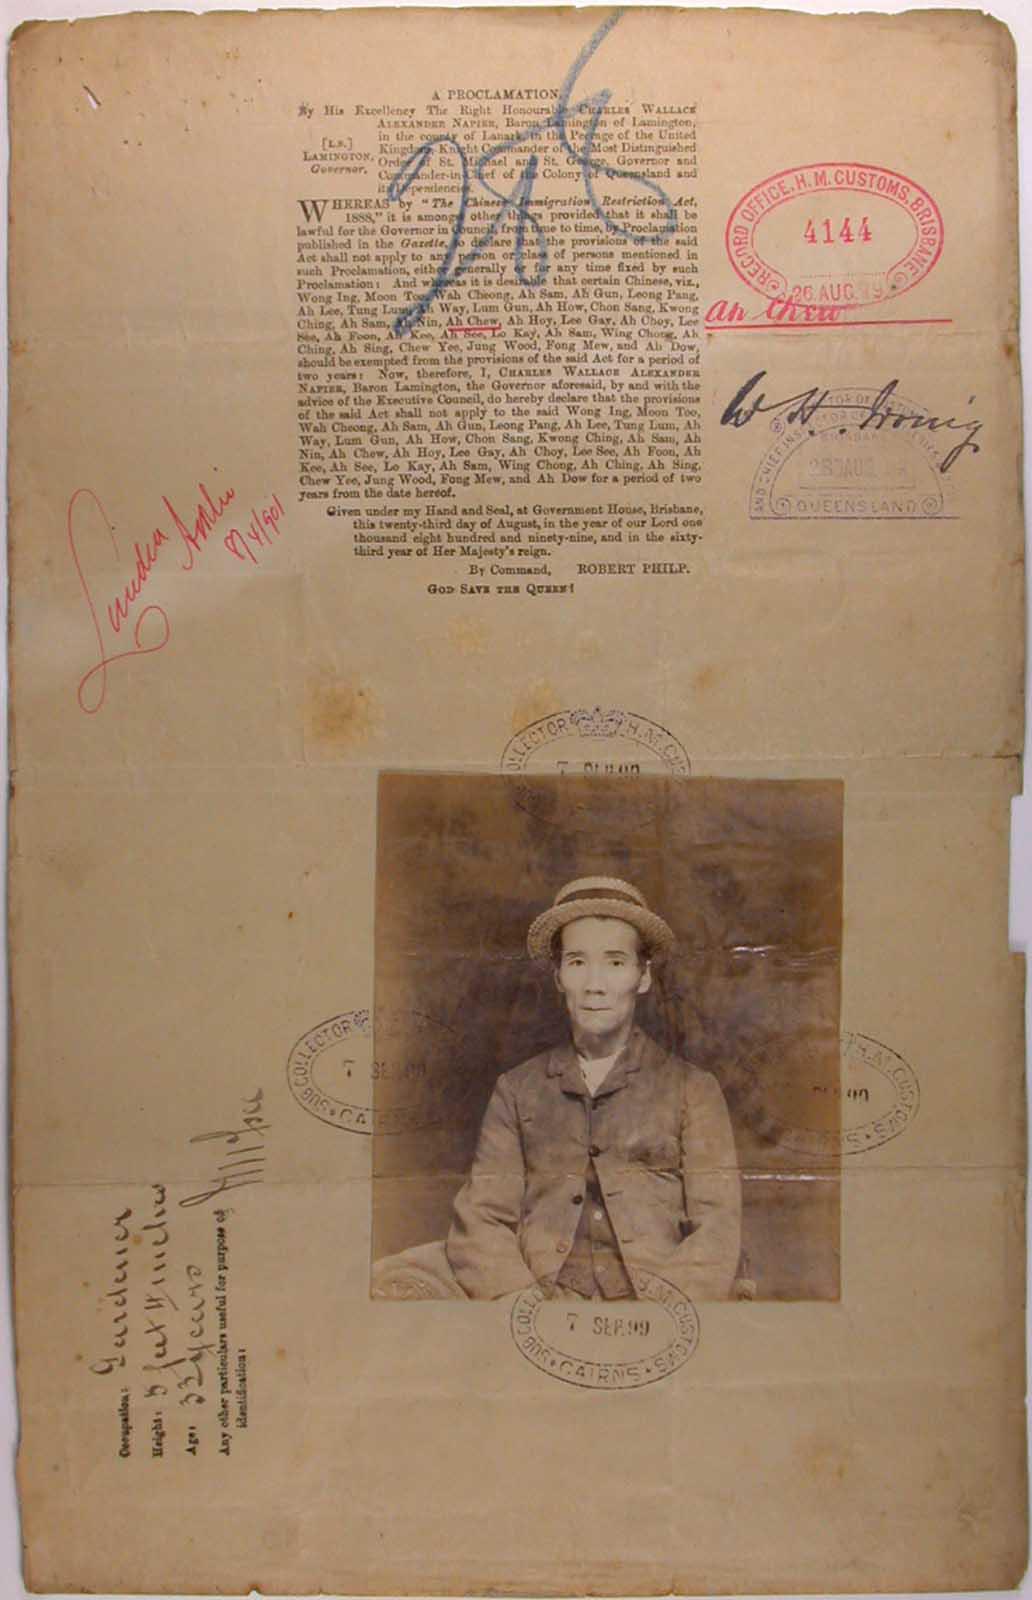 A PROCLAMATION.
By His Excellency The Right Honourable CHARLES WALLACE
ALEXANDER NAPIER, Baron Lamington of Lamington,
in the county of Lanark, in the Peerage of the United
[L.S.] Kingdom, Knight Commander of the Most Distinguished
LAMINGTON, Order of St. Michael and St. George, Governor and
Governor. Commander-in-Chief of the Colony of Queensland and
its Dependencies.
WHEREAS by "The Chinese Immigration Restriction Act,
1888," it is amongst other things provided that it shall be
lawful for the Governor in Council, from time to time, by Proclamation
published in the Gazette, to declare that the provisions of the said
Act shall not apply to any person or class of persons mentioned in
such Proclamation, either generally or for any time fixed by such
Proclamation: And whereas it is desirable that certain Chinese, viz.,
Wong Ing, Moon Too, Wah Cheong, Ah Sam, Ah Gun, Leong Pang,
Ah Lee, Tung Lum, Ah Way, Lum Gun, Ah How, Chon Sang, Kwong
Ching, Ah Sam, Ah Nin, Ah Chew, Ah Hoy, Lee Gay, Ah Choy, Lee
See, Ah Foon, Ah Kee, Ah See, Lo Kay, Ah Sam, Wing Chong, Ah
Ching, Ah Sing, Chew Yee, Jung Wood, Fong Mew, and Ah Dow,
should be exempted from the provisions of the said Act for a period of
two years: Now, therefore, I, CHARLES WALLACE ALEXANDER
NAPIER, Baron Lamington, the Governor aforesaid, by and with the
advice of the Executive Council, do hereby declare that the provisions
of the said Act shall not apply to the said Wong Ing, Moon Too,
Wah Cheong, Ah Sam, Ah Gun, Leong Pang, Ah Lee, Tung Lum, Ah
Way, Lum Gun, Ah How, Chon Sang, Kwong Ching, Ah Sam, Ah
Nin, Ah Chew, Ah Hoy, Lee Gay, Ah Choy, Lee See, Ah Foon, Ah
Kee, Ah See, Lo Kay, Ah Sam, Wing Chong, Ah Ching, Ah Sing,
Chew Yee, Jung Wood, Fong Mew, and Ah Dow for a period of two
years from the date hereof.
Given under my Hand and Seal, at Government House, Brisbane,
this twenty-third day of August, in the year of our Lord one
thousand eight hundred and ninety-nine, and in the sixty-
third year of Her Majesty's reign.
By Command, ROBERT PHILP.
GOD SAVE THE QUEEN!
RECORD OFFICE, H. M. CUSTOMS, BRISBANE
4144
26 AUG. 99
Ah Chew
W H. Irving
QUEENSLAND
8/4/901
SUB COLLECTOR H.M. CUSTOMS
7 SEP. 99
SUB COLLECTOR
7 SEP. 99
CAIRNS
H.M. CUSTOMS
SUB COLLECTOR H.M. CUSTOMS
7 SEP. 99
CAIRNS
Occupation: Gardener
Height: 5 feet
Age: 32 years
Any other particulars useful for purpose of
identification: